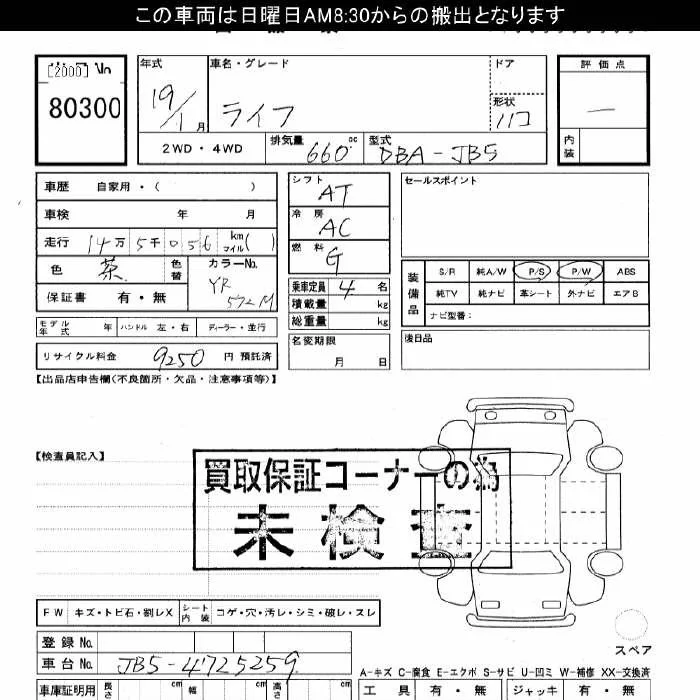 この車両は日曜日AM8:30からの搬出となります
[2000] No
80300
年式 19/1月
車名・グレード ライフ
ドア
形状 ハコ
評価点 —
内装
2WD・4WD
排気量 660 cc
型式 DBA-JB5
車歴 自家用・( )
車検 年 月
走行 14万5千056 km マイル( )
色 茶 色替
カラーNo. YR 572M
保証書 有・無
モデル年式 年 ハンドル 左・右 ディーラー・並行
リサイクル料金 9250 円 預託済
シフト AT
冷房 AC
燃料 G
乗車定員 4 名
積載量 kg
総重量 kg
名変期限 月 日
セールスポイント
装備品 S/R 純A/W P/S P/W ABS
純TV 純ナビ 革シート 外ナビ エアB
ナビ型番:
後日品
【出品店申告欄(不良箇所・欠品・注意事項等)】
【検査員記入】
買取保証コーナーの為
未検査
FW キズ・トビ石・割レX シート内装 コゲ・穴・汚レ・シミ・破レ・スレ
登録No.
車台No. JB5-4725259
スペア
A-キズ C-腐食 E-エクボ S-サビ U-凹ミ W-補修 XX-交換済
車庫証明用 長さ cm 幅 cm 高さ cm
工具 有・無 ジャッキ 有・無